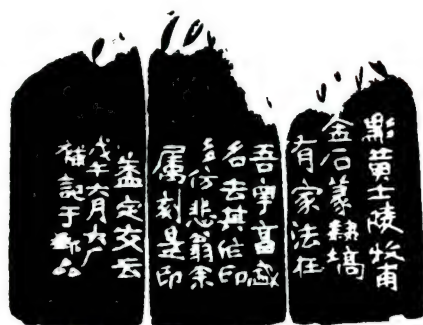 黟黃士陵牧甫
金石篆隸塙
有家法在
吾
名去其作印
多仿悲翁余
属刻是印
盖定交云
戊午六月大厂
記于